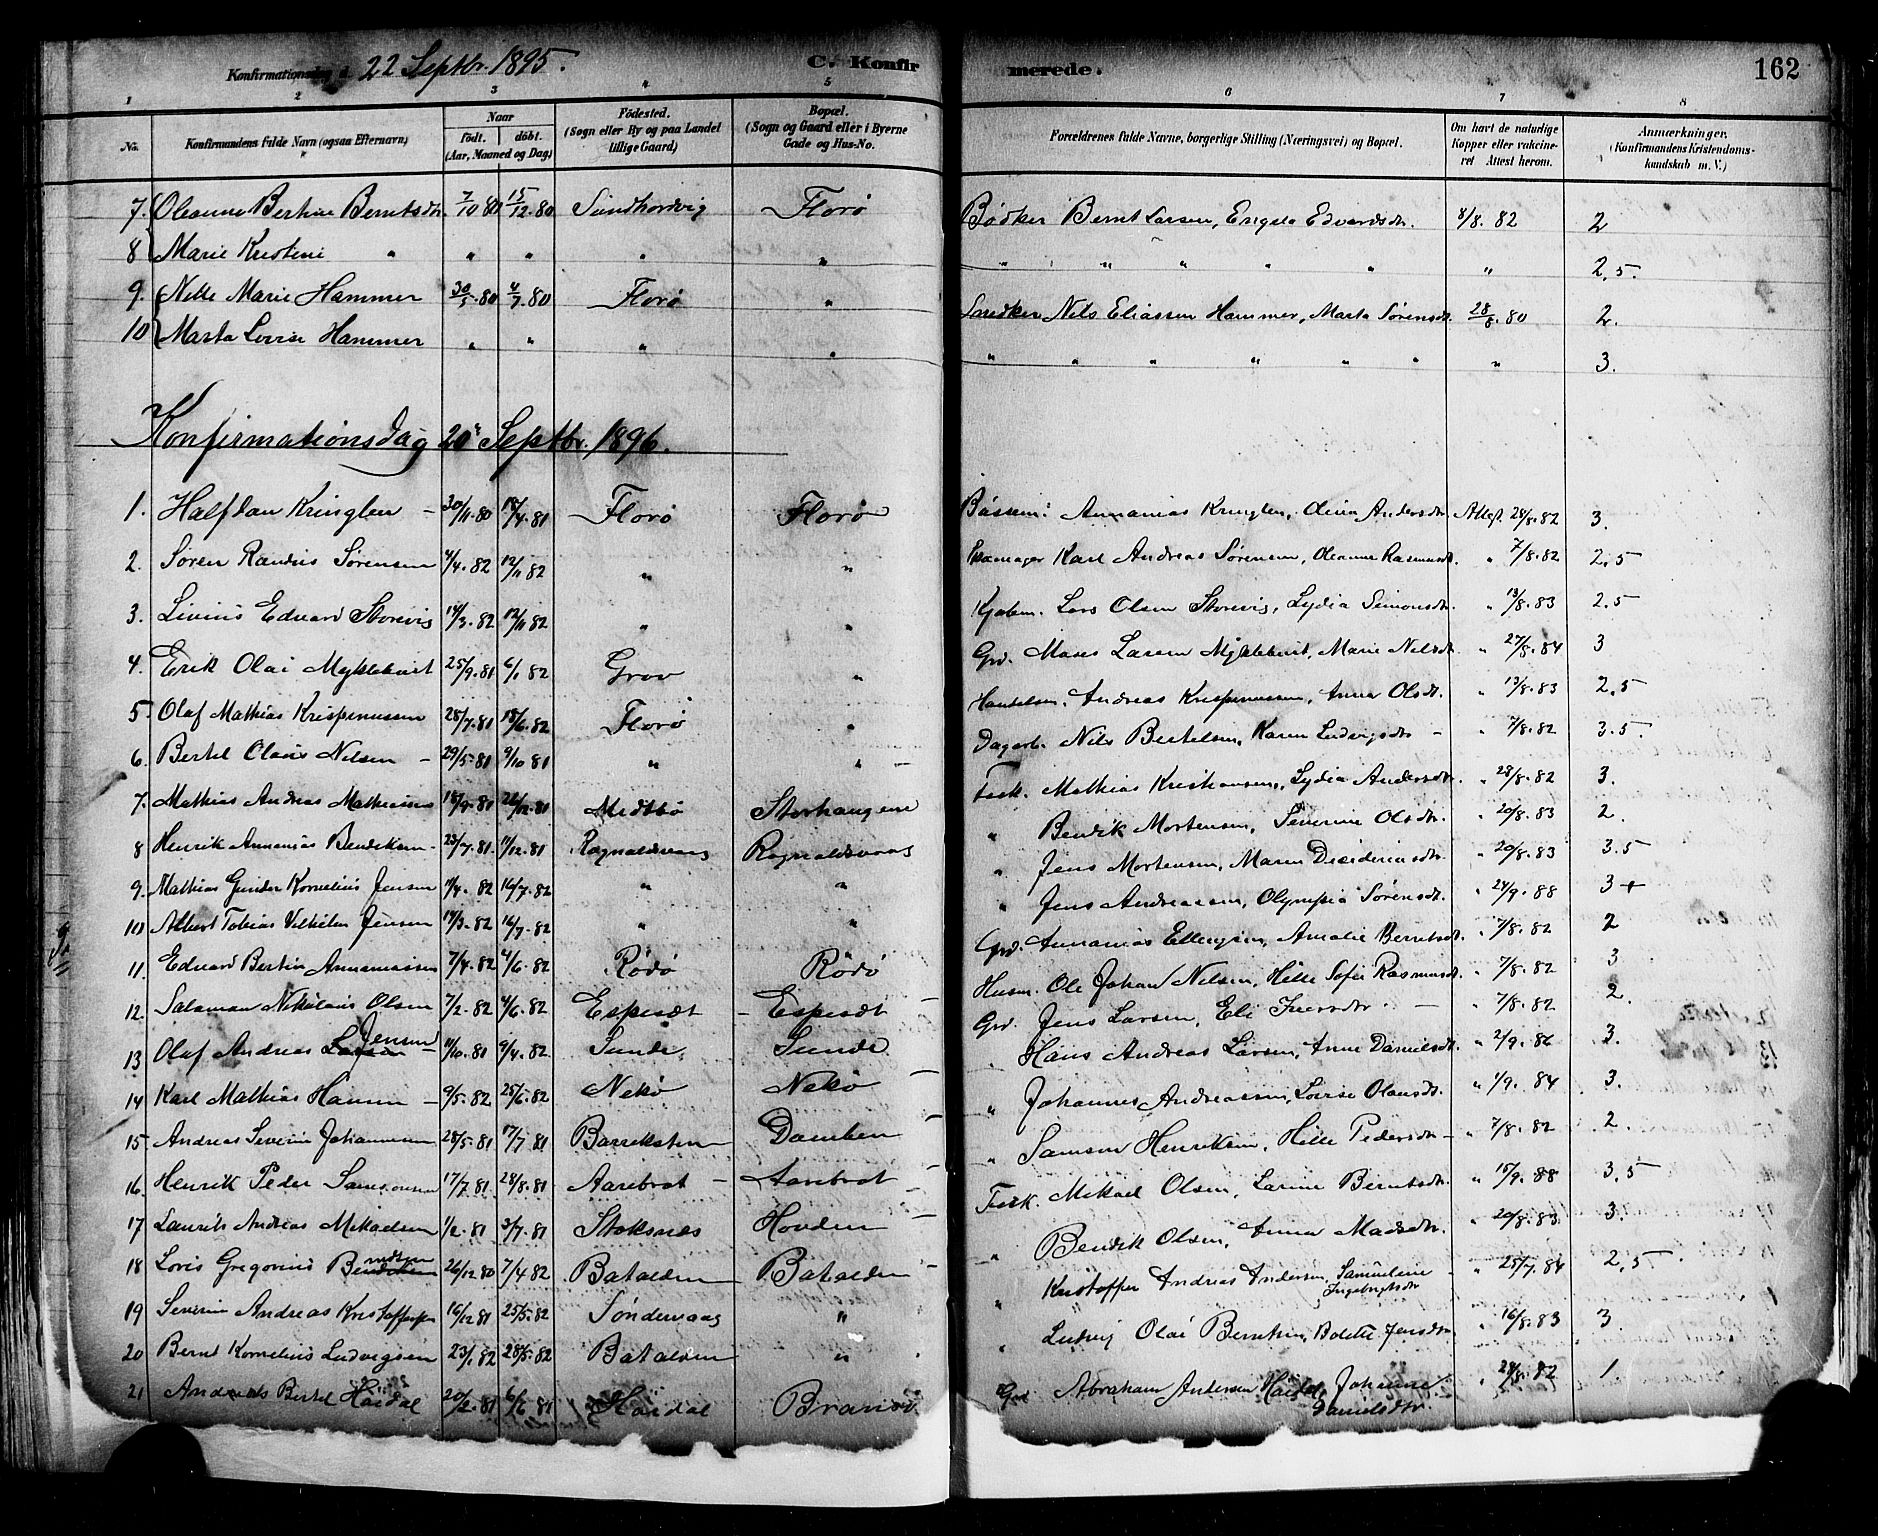 Konfirmationsdag d. 22 Septbr. 1895. C. Konfirmerede. 162
1 2 3 4 5 6 7 8
No. Konfirmandens fulde Navn (ogsaa Efternavn). Naar født. døbt. (Aar, Maaned og Dag) Fødested. (Sogn eller By og paa Landet tillige Gaard) Bopæl. (Sogn og Gaard eller i Byerne Gade og Hus-No. Forældrenes fulde Navne, borgerlige Stilling (Næringsvei) og Bopæl. Om havt de naturlige Kopper eller vakcineret Attest herom. Anmærkninger. (Konfirmandens Kristendomskundskab m. V.)
7. Oleanne Bertine Berntsdtr. 7/10.80 15/12.80 Florø Bødker Bernt Larsen, Engela Edvardsdtr. 8/8.82 2
8 Marie Kristine " " " " " " " " " " " 2,5.
9. Nelle Marie Hammer 30/5.80 4/7.80 Florø " Nils Eliassen Hammer, Marta Sørensdtr. 28/8.80 2.
10 Marta Lovise Hammer " " " " " " " " " " " 3.
Konfirmationsdag 20de Septbr. 1896.
1. Halfdan Kringlen - 30/11.80 18/4.81 Florø Florø Ananias Kringlen, Olina Andersdtr. Attest 28/8.82 3.
2. Søren Randius Sørensen 4/4.82 12/11 82 " " Karl Andreas Sørensen, Oleanne Rasmusdtr. " 7/8.82 2,5
3. Livius Edvard Storevig 14/3.82 12/11 82 " " Kjøbm. Lars Olsen Storevig, Lydia Simonsdtr. " 13/8.83 2.5
4. Erik Olai Myklebust 25/9.81 6/1 82 Grov " Grd. Moses Larsen Myklebust, Marie Nilsdtr. " 27/8.84 3
5. Olaf Mathias Krispinussen 28/7.81 18/6.82 Florø " Handelsm. Andreas Krispinussen, Anna Olsdtr. " 13/8.83 2,5
6. Bertel Olaus Nilsen - 29/5.81 9/10 81 " " - Dagarb. Nils Bertelsen, Karen Ludvigsdtr - " 7/8.82 3.5.
7. Mathias Andreas Mathiassen 18/9.81 26/12.81 Midtbø Storhaugene Fisk. Mathias Kristiansen, Lydia Andersdtr. " 28/8.82 3.
8 Henrik Annanias Bendiksen 23/7.81. 11/12.81 Rognaldsvaag Rognaldsvaag " Bendik Mortensen, Severine Olsdtr. " 20/8.83 2.
9. Mathias Gunder Kornelius Jensen 11/4.82 16/7.82 " " " Jens Mortensen, Maren Desideriusdtr. " 20/8.83 3.5
10 Albert Tobias Vilhelm Jensen 14/3.82 16/7.82 " " " Jens Andreassen, Olympia Sørensdtr. " 24/9.88 3+
11. Edvard Bertin Annaniassen 7/4.82 4/6.82 Rødø Rødø Grd. Annanias Ellingsen, Amalie Berntsdtr. " 7/8.82 2
12. Salamon Nikolaus Olsen 7/2.82 4/6.82 Espesæt - Espesæt - Husm. Ole Johan Nilsen, Hille Sofie Rasmusdtr. " 7/8.82 3
13 Olaf Andreas Larsen Jensen 11/10.81 9/4.82 Sunde Sunde - Grd. Jens Larsen, Eli Iversdtr - 7/8.82 2.
14 Karl Mathias Hansen - 9/5.82 25/6.82 Nekø Nekø - " Hans Andreas Larsen, Anne Danielsdtr. " 2/9.86 3.
15 Andreas Severin Johannessen 28/5.81 17/7.81 Barreksten Damben - " Johannes Andreassen, Lovise Olausdtr. " 1/9.84 3.
16. Henrik Peder Samsonsen 17/7.81 28/8.81 Aarebrot - Aarebrot - " Samson Henriksen, Hille Pedersdtr - " 7/8.82 2.
17 Laurits Andreas Mikaelsen 1/2.81 3/7.81 Stoksnæs Hovden - Fisk. Mikael Olsen, Larine Berntsdtr. " 15/9.88 3,5
18 Loris Gregorius Bendiksen 26/12.80 7/4.82 Batalden Batalden - " Bendik Olsen, Anna Madsdtr. " 20/8.83 3.
19 Severin Andreas Kristoffersen 16/12.81 25/5.82 Søndervaag " " Kristoffer Andreas Andersen, Samueline Ingebrigtsdtr " 25/7.84 2,5
20 Bernt Kornelius Ludvigsen 23/1.82 28/5.82 Batalden " " Ludvig Olai Berntsen, Bolette Jensdtr. " 16/8.83 3.
21 Andreas Bertel Høidal 20/2.81 6/6 81 Høidal Grd Abraham Andersen Høidal, Johanne Danielsdtr. " 28/8.82 1